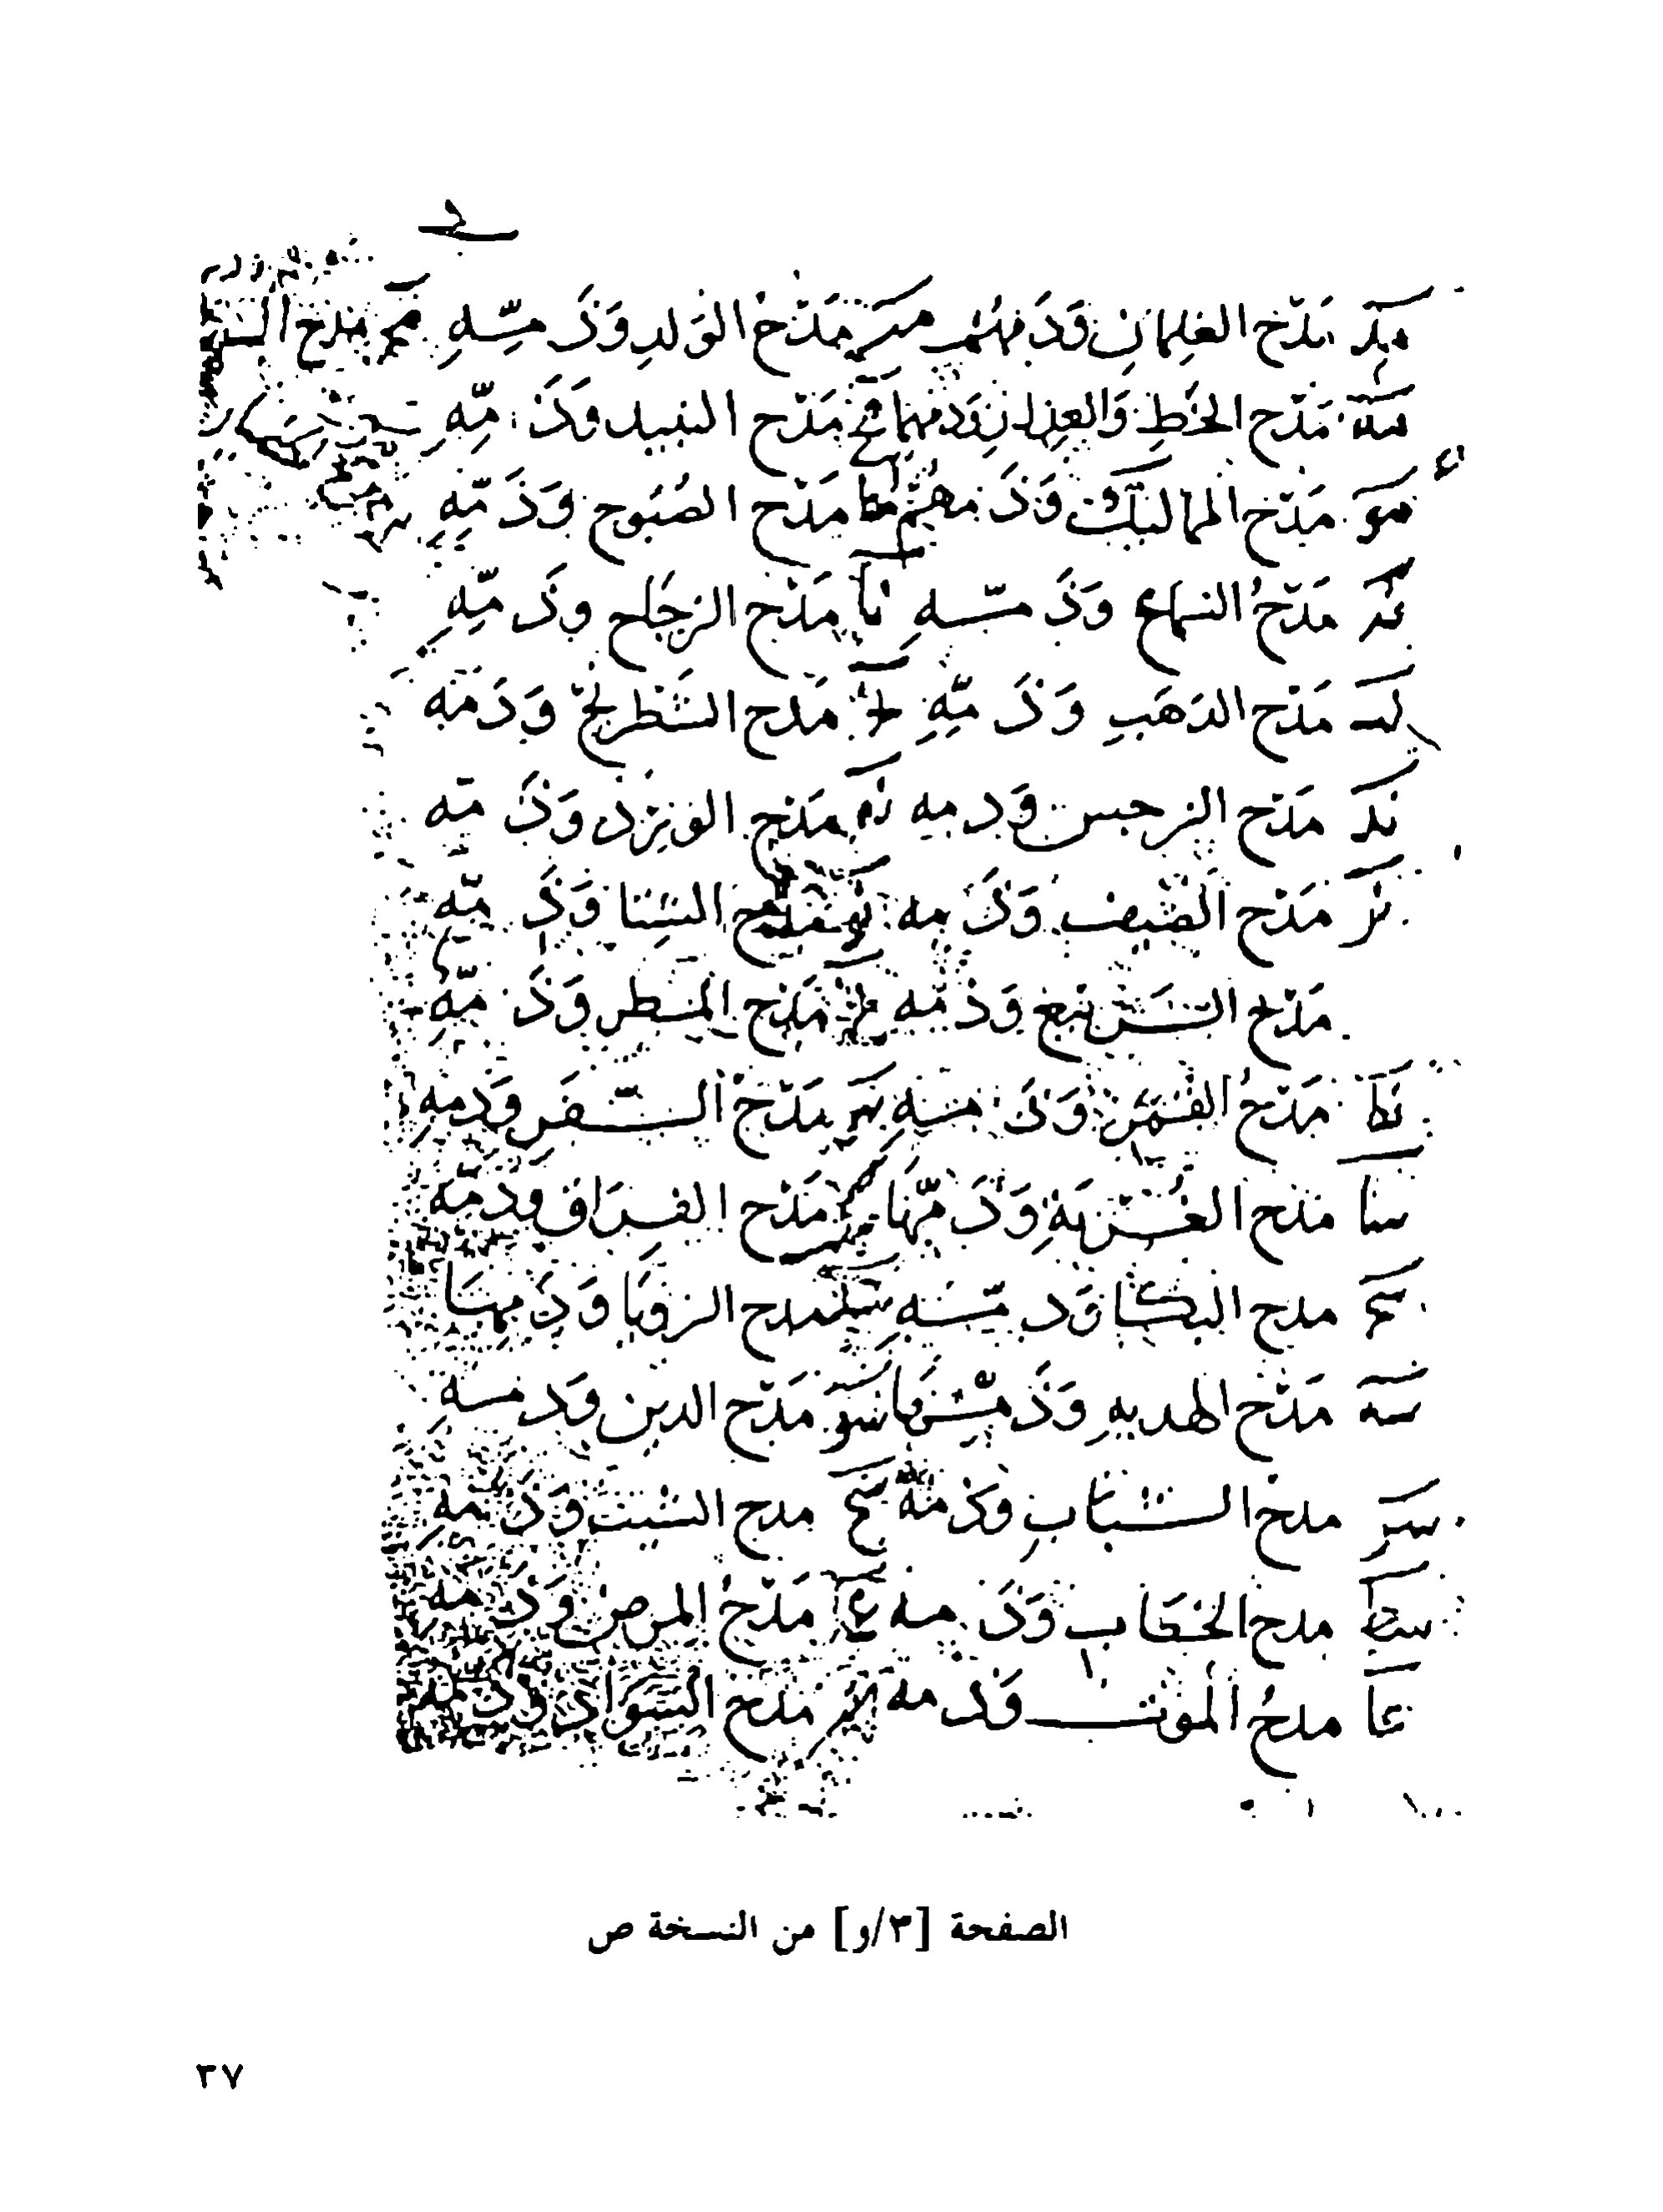 مدح الغلمان وذمهم مدح الولد وذمه مدح
مدح الخط والعذار وذمهما مدح النبيذ وذمه
مدح المماليك وذمهم مدح الصبوح وذمه
مدح السماع وذمه نا مدح الزجاج وذمه
مدح الذهب وذمه مدح الشطرنج وذمه
ند مدح النرجس وذمه نه مدح الورد وذمه
نز مدح الصيف وذمه نو مدح الشتا وذمه
مدح الربيع وذمه مدح المطر وذمه
مدح القمر وذمه مدح السفر وذمه
سا مدح الغربة وذمها مدح الفراق وذمه
سج مدح البكا وذمه سد مدح الرويا وذمها
سه مدح الهديه وذمها سو مدح الدين وذمه
سز مدح الشباب وذمه سح مدح الشيب وذمه
سط مدح الخضاب وذمه ع مدح المرض وذمه
عا مدح الموت وذمه مدح السواد وذمه
الصفحة [٣/و] من النسخة ص
٣٧